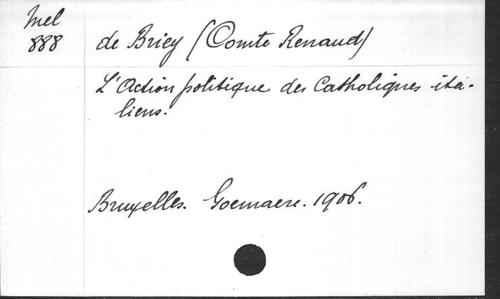 Mel
888
de Briey (Comte Renaud)
L'Action politique des Catholiques ita-
liens.
Bruxelles. Goemaere. 1906.